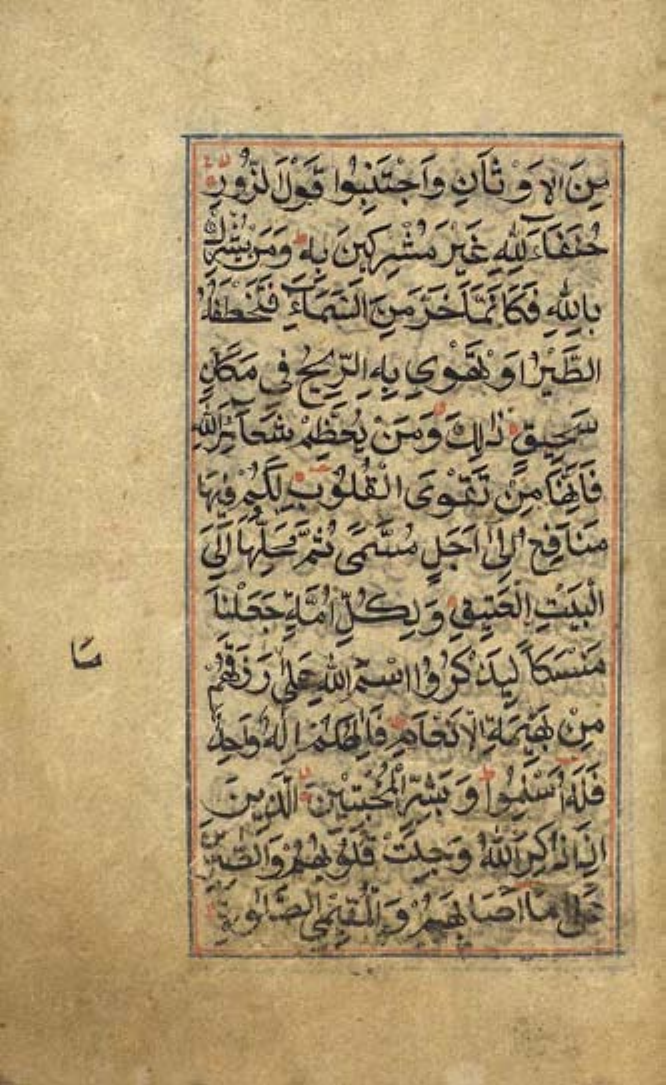 مِنَ الاَوْثَانِ وَاجْتَنِبُوا قَوْلَ لزُّورِ
حُنَفَاءَ لِلّٰهِ غَيْرَ مُشْرِكِينَ بِهِ وَمَنْ يُشْرِكْ
بِاللّٰهِ فَكَاَنَّمَا خَرَّ مِنَ السَّمَاءِ فَتَخْطَفُهُ
الطَّيْرُ اَوْ تَهْوِي بِهِ الرِّيحُ فِى مَكَانٍ
سَحِيقٍ ذٰلِكَ وَمَنْ يُعَظِّمْ شَعَآئِرَ اللّٰهِ
فَاِنَّهَا مِنْ تَقْوَى الْقُلُوبِ لَكُمْ فِيهَا
مَنَافِعُ اِلٰى اَجَلٍ مُسَمًّى ثُمَّ مَحِلُّهَا اِلَى
الْبَيْتِ الْعَتِيقِ وَلِكُلِّ اُمَّةٍ جَعَلْنَا
مَنْسَكاً لِيَذْكُرُوا اسْمَ اللّٰهِ عَلٰى مَا رَزَقَهُمْ
مِنْ بَهِيمَةِ الْاَنْعَامِ فَاِلٰهُكُمْ اِلٰهٌ وَاحِدٌ
فَلَهُ اَسْلِمُوا وَبَشِّرِ الْمُخْبِتِينَ الَّذِينَ
اِذَا ذُكِرَ اللّٰهُ وَجِلَتْ قُلُوبُهُمْ وَالصّٰبِرِينَ
عَلٰى مَا اَصَابَهُمْ وَالْمُقِيمِى الصَّلٰوةِ